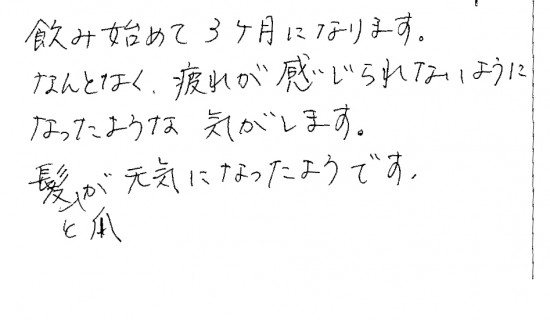 飲み始めて3ケ月になります。
なんとなく、疲れが感じられないように
なったような気がします。
髪が元気になったようです。
と爪